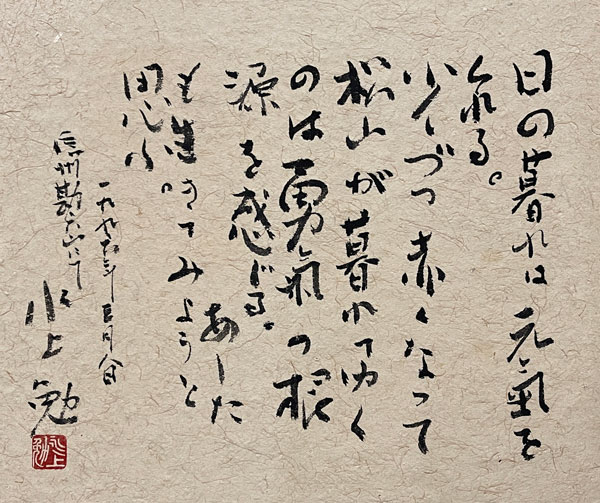 日の暮れは元氣を
くれる。
少しづつ赤くなって
松山が暮れてゆく
のは勇氣の根
源を感じる。あした
も生きてみようと
思ふ
一九九六年三月八日
信州勘六山にて
水上勉
水上
勉